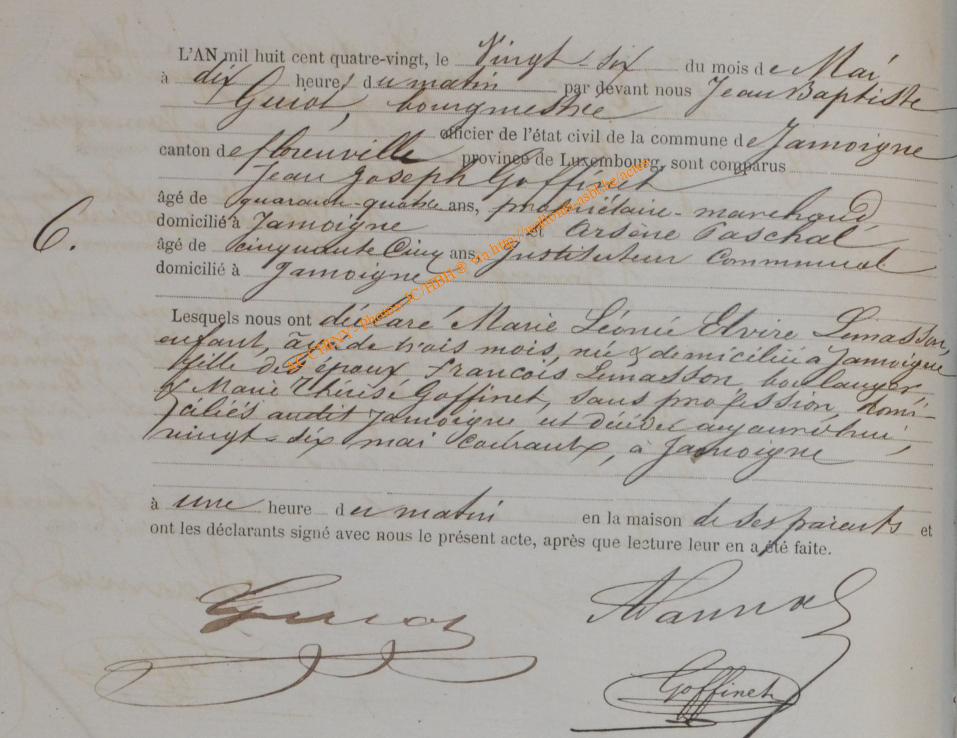 L'AN mil huit cent quatre-vingt, le Vingt-six du mois de Mai
à dix heures du matin par devant nous Jean Baptiste
Guiot, bourgmestre
officier de l'état civil de la commune de Jamoigne
canton de florenville province de Luxembourg, sont comparus
Jean Joseph Goffinet
âgé de quarante-quatre ans, propriétaire-marchand
domicilié à Jamoigne et Arsène Paschal
6.
âgé de cinquante Cinq ans, Instituteur Communal
domicilié à Jamoigne
Lesquels nous ont déclaré Marie Léonie Elvire Lemasson,
enfant, âgée de trois mois, née & domiciliée à Jamoigne
fille des époux François Lemasson, boulanger
& Marie Thérèse Goffinet, sans profession, domi-
ciliés audit Jamoigne est décédée aujourd'hui,
vingt-six mai courant, à Jamoigne
à une heure du matin en la maison de ses parents et
ont les déclarants signé avec nous le présent acte, après que lecture leur en a été faite.
Guiot
Goffinet